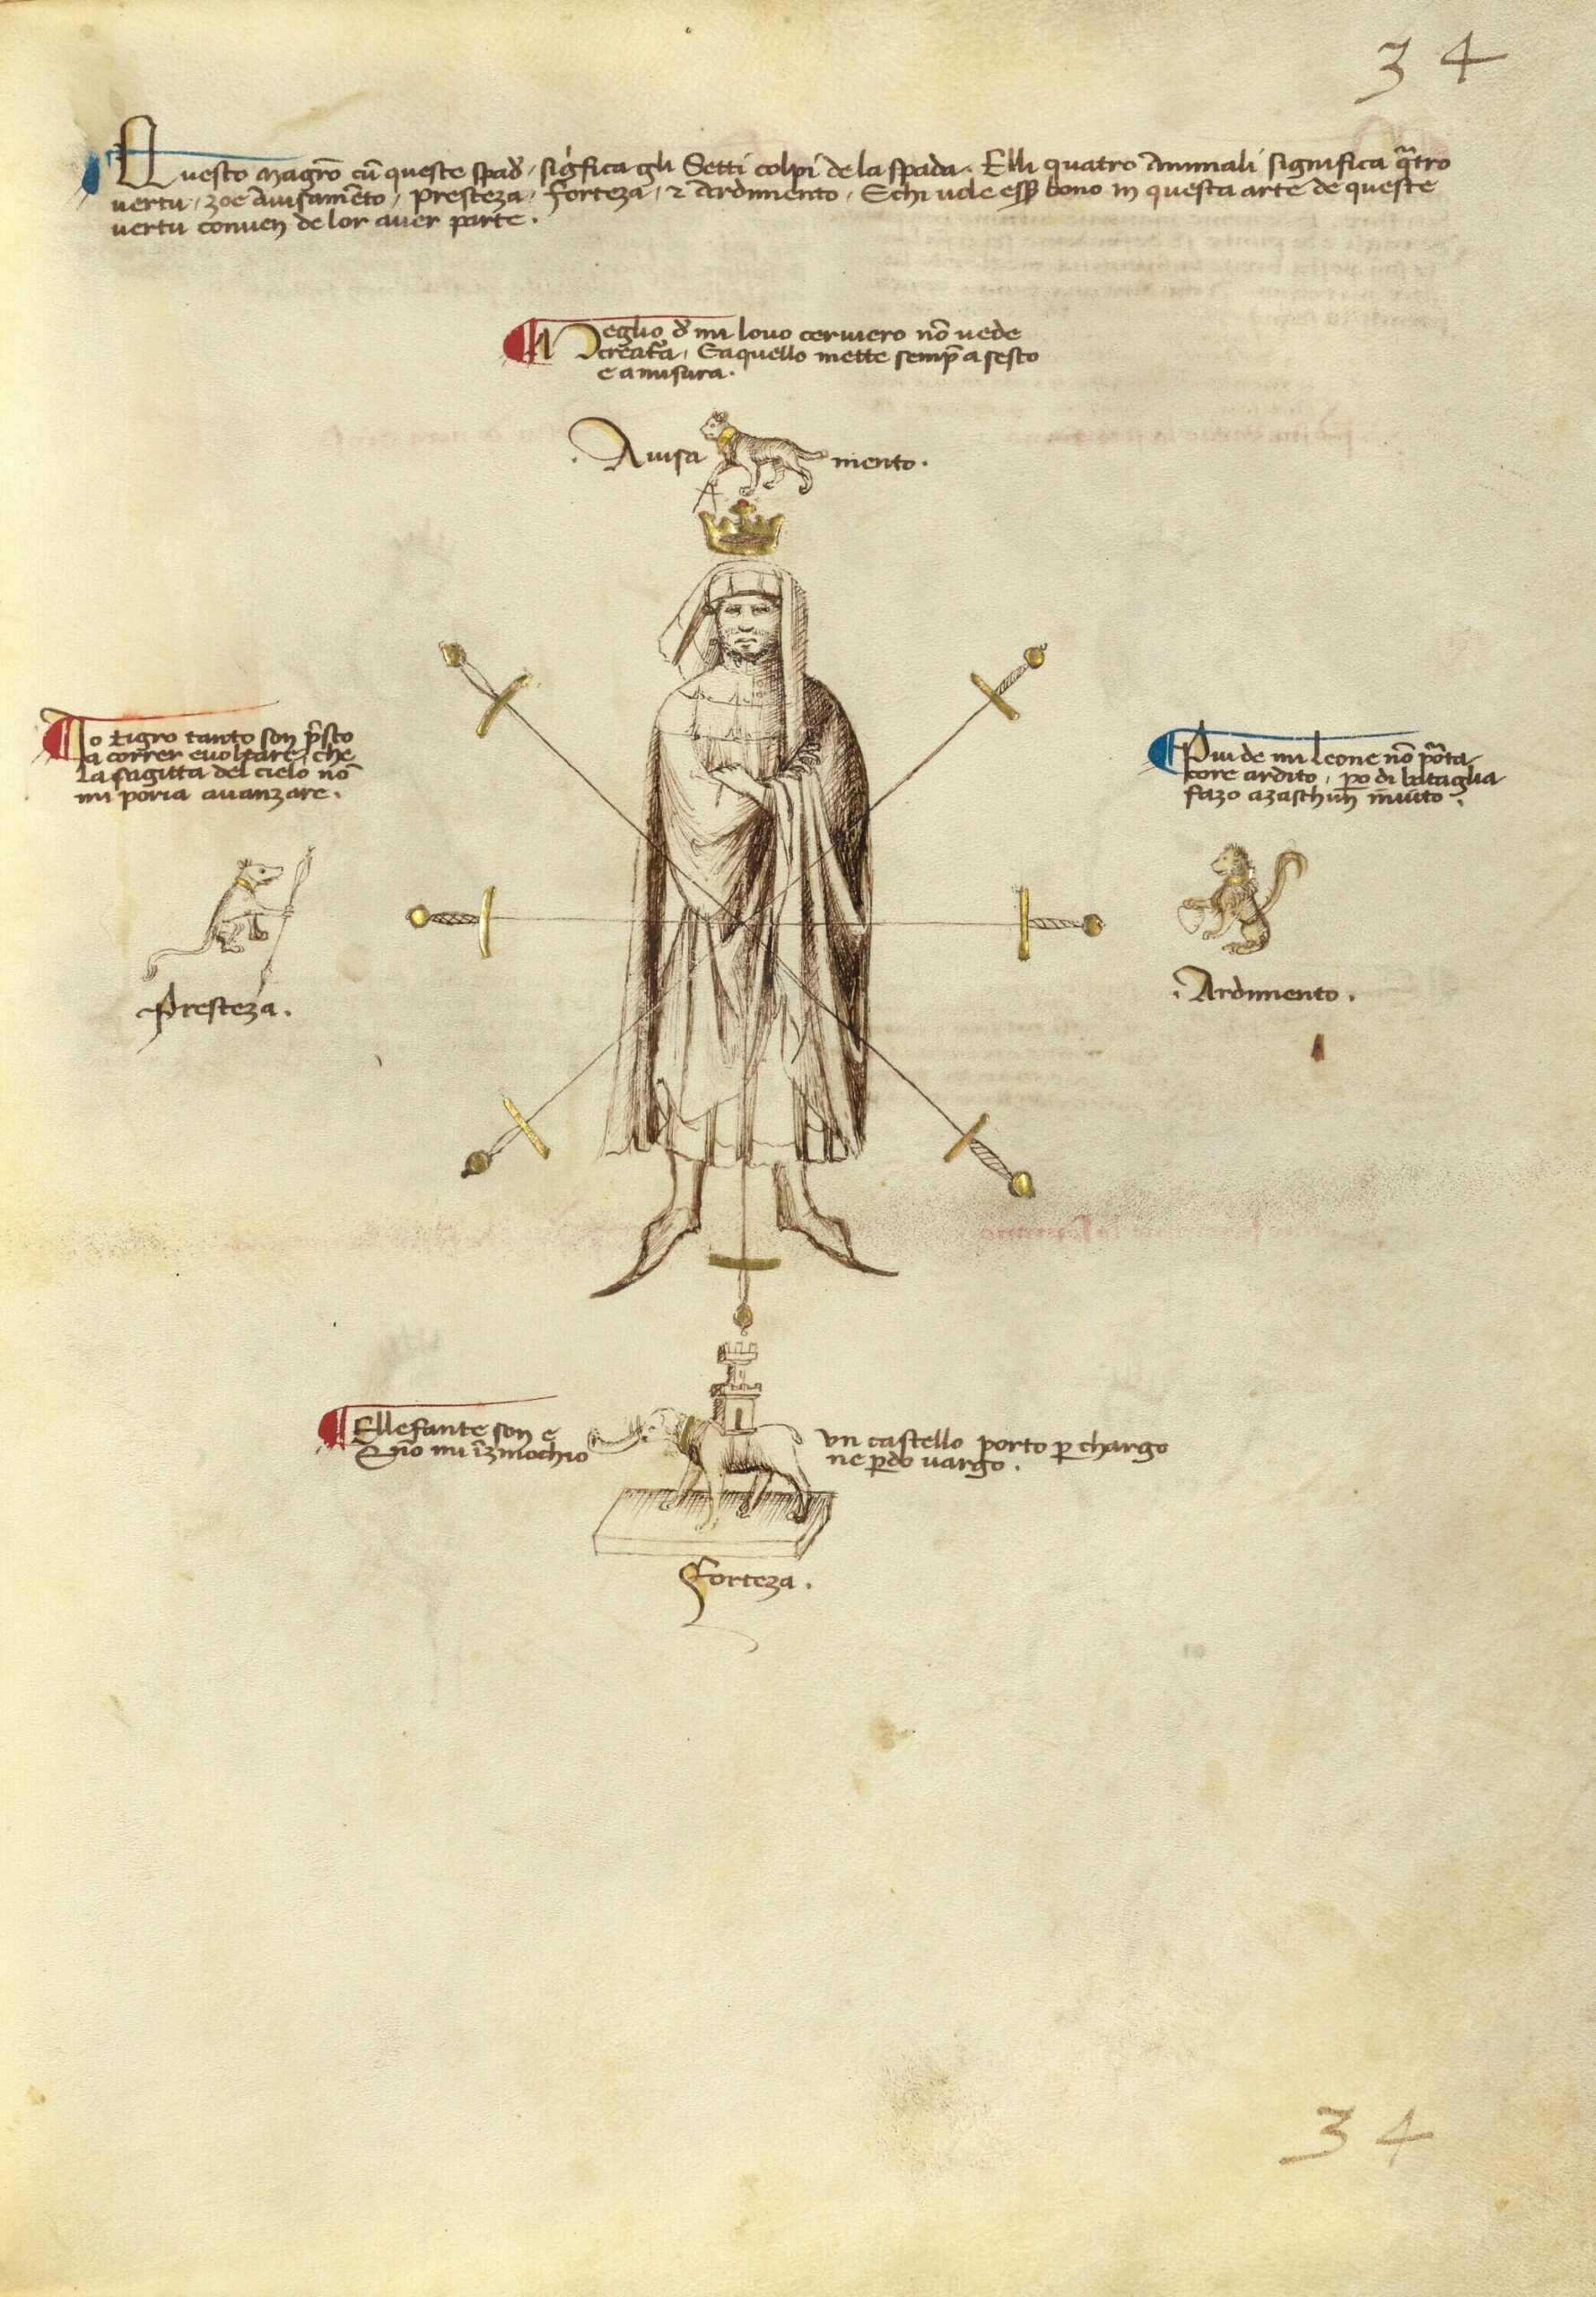 34
Questo Magrō cū queste spad̄, sigīfica gli Setti colpi de la spada. Elli quatro Animali significa q̄tro
vertu, zoe Avisamēto, Presteza, Forteza, ⁊ Ardimento, E chi vole ess̄ bono in questa arte de queste
vertu conven de lor aver parte.
Meglio d̄ mi lovo cerviero nō vede
creat̄a, E aquello mette semp̄ a sesto
e a misura.
. Avisa mento .
Io tigro tanto son p̄sto
a correr e voltare, che
la sagitta del cielo nō
mi poria avanzare.
Piu de mi Leone nō porta
core ardito, po di bataglia
fazo azaschun invito.
Presteza.
. Ardimento .
Ellefante son e un castello porto p̱ chargo
E nō mi inzinochio ne p̱do vargo.
Forteza .
34